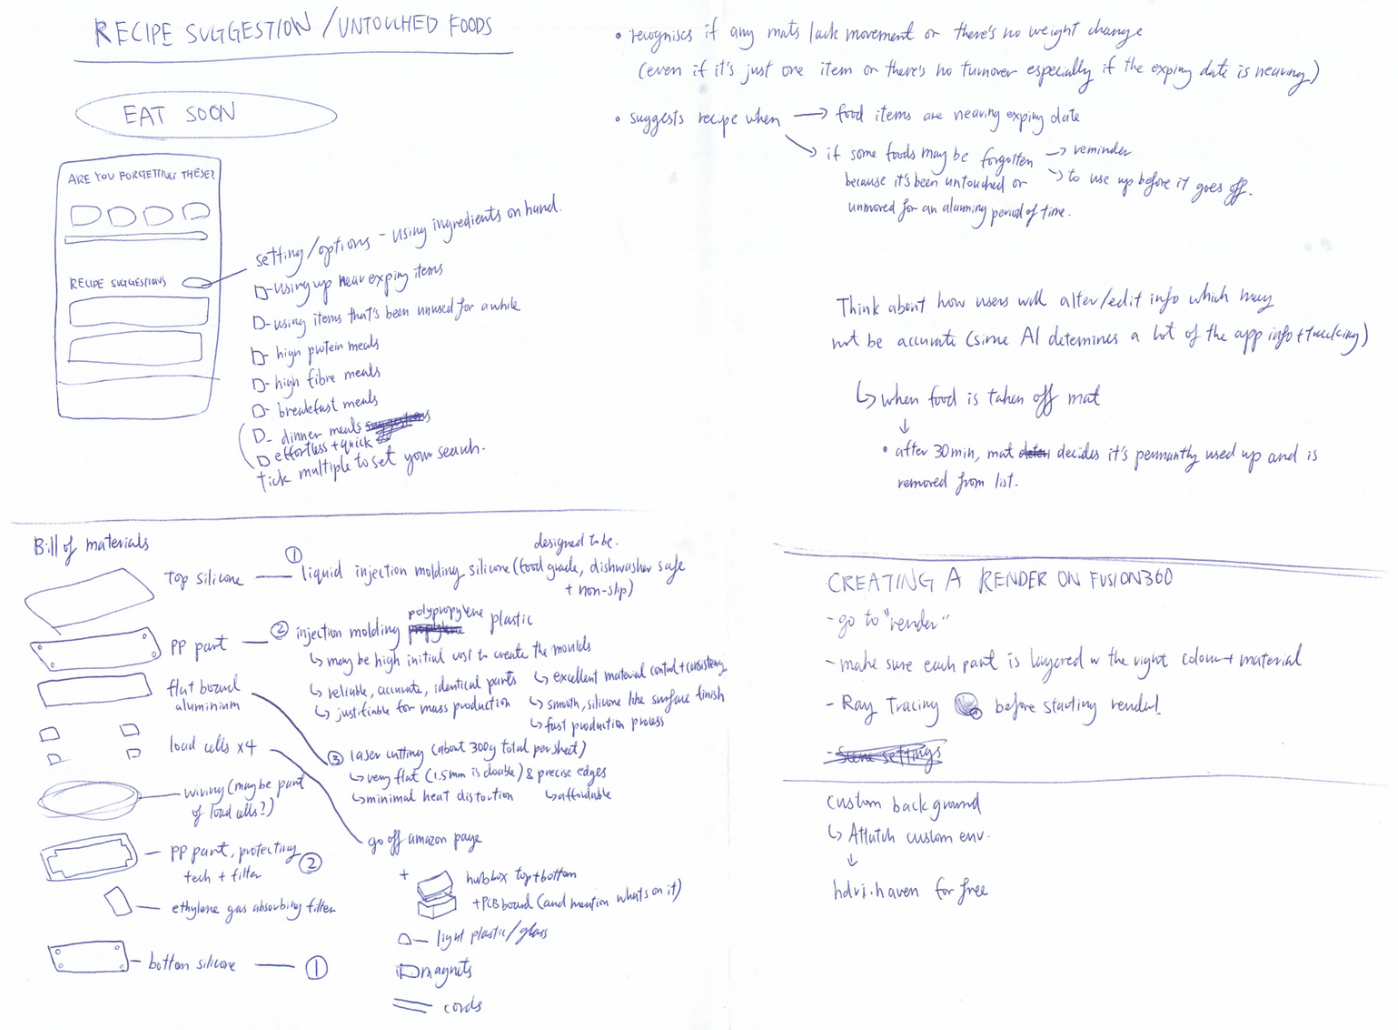 RECIPE SUGGESTION / UNTOUCHED FOODS
EAT SOON
ARE YOU FORGETTING THESE?
RECIPE SUGGESTIONS
setting/options - using ingredients on hand.
- using up near expiry items
- using items that's been unused for a while
- high protein meals
- high fibre meals
- breakfast meals
- dinner meals
effortless + quick
tick multiple to set your search.
• recognises if any mats lack movement or there's no weight change
(even if it's just one item or there's no turnover especially if the expiry date is nearing)
• suggests recipe when → food items are nearing expiry date
↘ if some foods may be forgotten → reminder
because it's been untouched or ↘ to use up before it goes off.
unmoved for an alarming period of time.
Think about how users will alter/edit info which may
not be accurate (since AI determines a lot of the app info + tracking)
↳ when food is taken off mat
↓
• after 30min, mat decides it's permantly used up and is
removed from list.
Bill of materials
top silicone — ① liquid injection molding silicone (food grade, dishwasher safe
designed to be.
+ non-slip)
PP part — ② injection molding polypropylene plastic
propylene
↳ may be high initial cost to create the moulds
↳ reliable, accurate, identical parts
↳ justifiable for mass production
↳ excellent material control + consistency
↳ smooth, silicone like surface finish
↳ fast production process
flat board
aluminium
③ laser cutting (about 300g total per sheet)
↳ very flat (1.5mm is doable) & precise edges
↳ minimal heat distortion ↳ affordable
load cells x4
go off amazon page
wiring (maybe part
of load cells?)
— PP part, protecting ②
tech + filter
— ethylene gas absorbing filter
— bottom silicone — ①
+ hubbox top + bottom
+ PCB board (and mention whats on it)
— light plastic/glass
magnets
cords
CREATING A RENDER ON FUSION360
- go to "render"
- make sure each part is layered w the right colour + material
- Ray Tracing before starting render!
- Scene settings
custom background
↳ Attatch custom env.
↓
hdri.haven for free